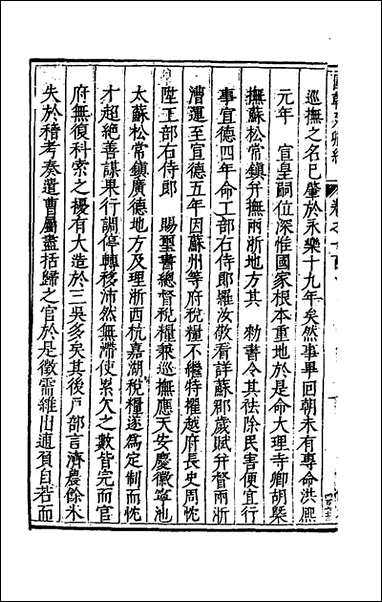 國朝列卿紀　卷之一百
巡撫之名已肇於永樂十九年矣然事畢回朝未有專命洪熙
元年　宣皇嗣位深惟國家根本重地於是命大理寺卿胡槩
撫蘇松常鎮并撫兩浙地方其　勑書令其祛除民害便宜行
事宣德四年命工部右侍郎羅汝敬看詳蘇郡歲賦并督兩浙
漕運至宣德五年因蘇州等府稅糧不繼特擢越府長史周忱
陞工部右侍郎　賜璽書總督稅糧兼巡撫應天安慶徽寧池
太蘇松常鎮廣德地方及理浙西杭嘉湖稅糧遂為定制而忱
才超絕善謀果行調停轉移沛然無滯使累欠之數皆完而官
府無復科索之擾有大造於三吳多矣其後戶部言濟農餘米
失於稽考奏遣曹屬盡括歸之官於是徵需雜出逋負自若而